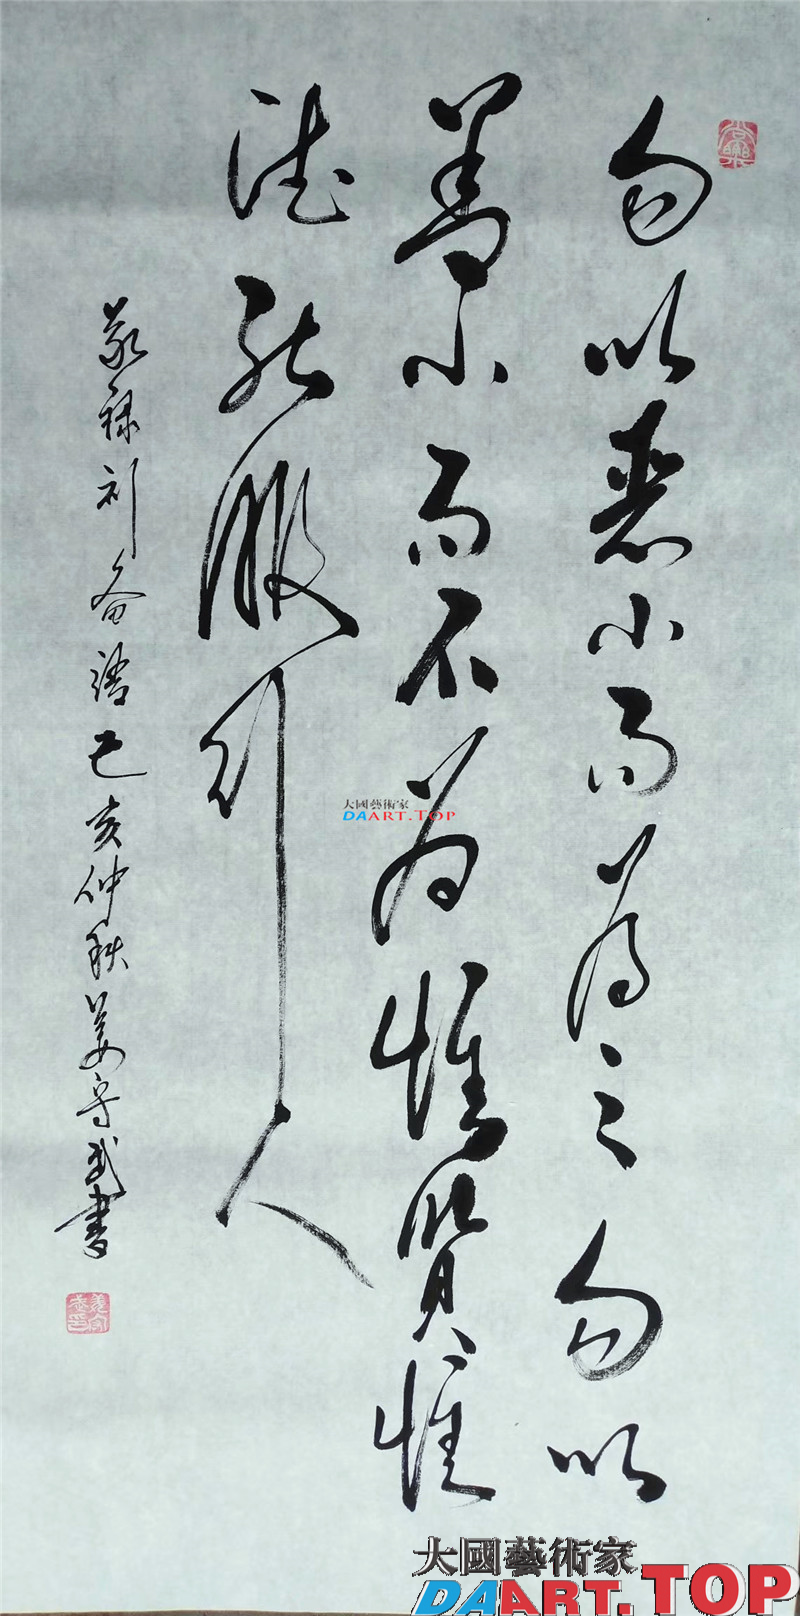 勿以恶小而为之勿以
善小而不为惟贤惟
德能服於人
敬录刘备语己亥仲秋姜守武书
姜守武印
大國藝術家
DAART.TOP
大國藝術家
DAART.TOP